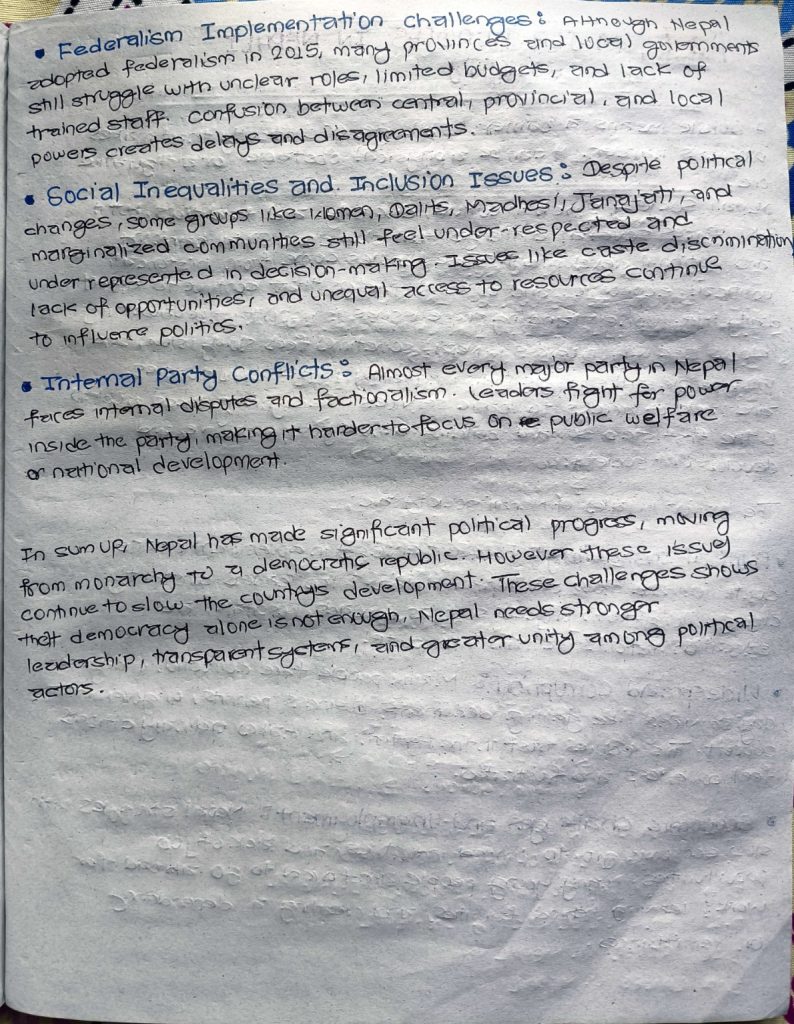 • Federalism Implementation challenges: Although Nepal
adopted federalism in 2015, many provinces and local governments
still struggle with unclear roles, limited budgets, and lack of
trained staff. Confusion between central, provincial, and local
powers creates delays and disagreements.
• Social Inequalities and Inclusion Issues: Despite political
changes, some groups like Women, Dalits, Madhesi, Janajati, and
marginalized communities still feel under-respected and
under represented in decision-making. Issues like caste discrimination
lack of opportunities, and unequal access to resources continue
to influence politics.
• Internal Party Conflicts: Almost every major party in Nepal
faces internal disputes and factionalism. Leaders fight for power
inside the party, making it harder to focus on public welfare
or national development.
In sum up, Nepal has made significant political progress, moving
from monarchy to a democratic republic. However these issues
continue to slow the country's development. These challenges shows
that democracy alone is not enough, Nepal needs stronger
leadership, transparent systems, and greater unity among political
actors.